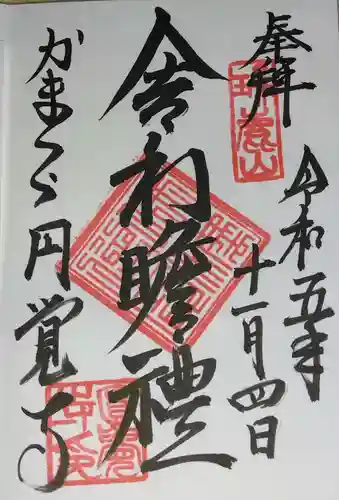 奉拝
瑞鹿山
令和五年
十一月四日
舎利瞻禮
かまくら円覚寺